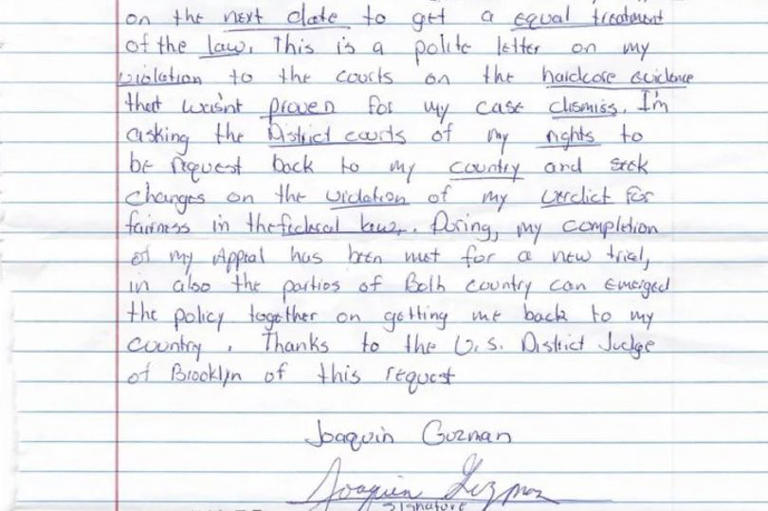 on the next date to get a equal treatment
of the law. This is a polite letter on my
violation to the courts on the hardcore evidence
that wasn't proven for my case dismiss. I'm
asking the District courts of my rights to
be request back to my country and seek
changes on the violation of my verdict for
fairness in the federal law. During, my completion
of my Appeal has been met for a new trial,
in also the parties of Both country can emerged
the policy together on getting me back to my
country. Thanks to the U.S. District Judge
of Brooklyn of this request
Joaquin Guzman
Joaquin Guzman
signature